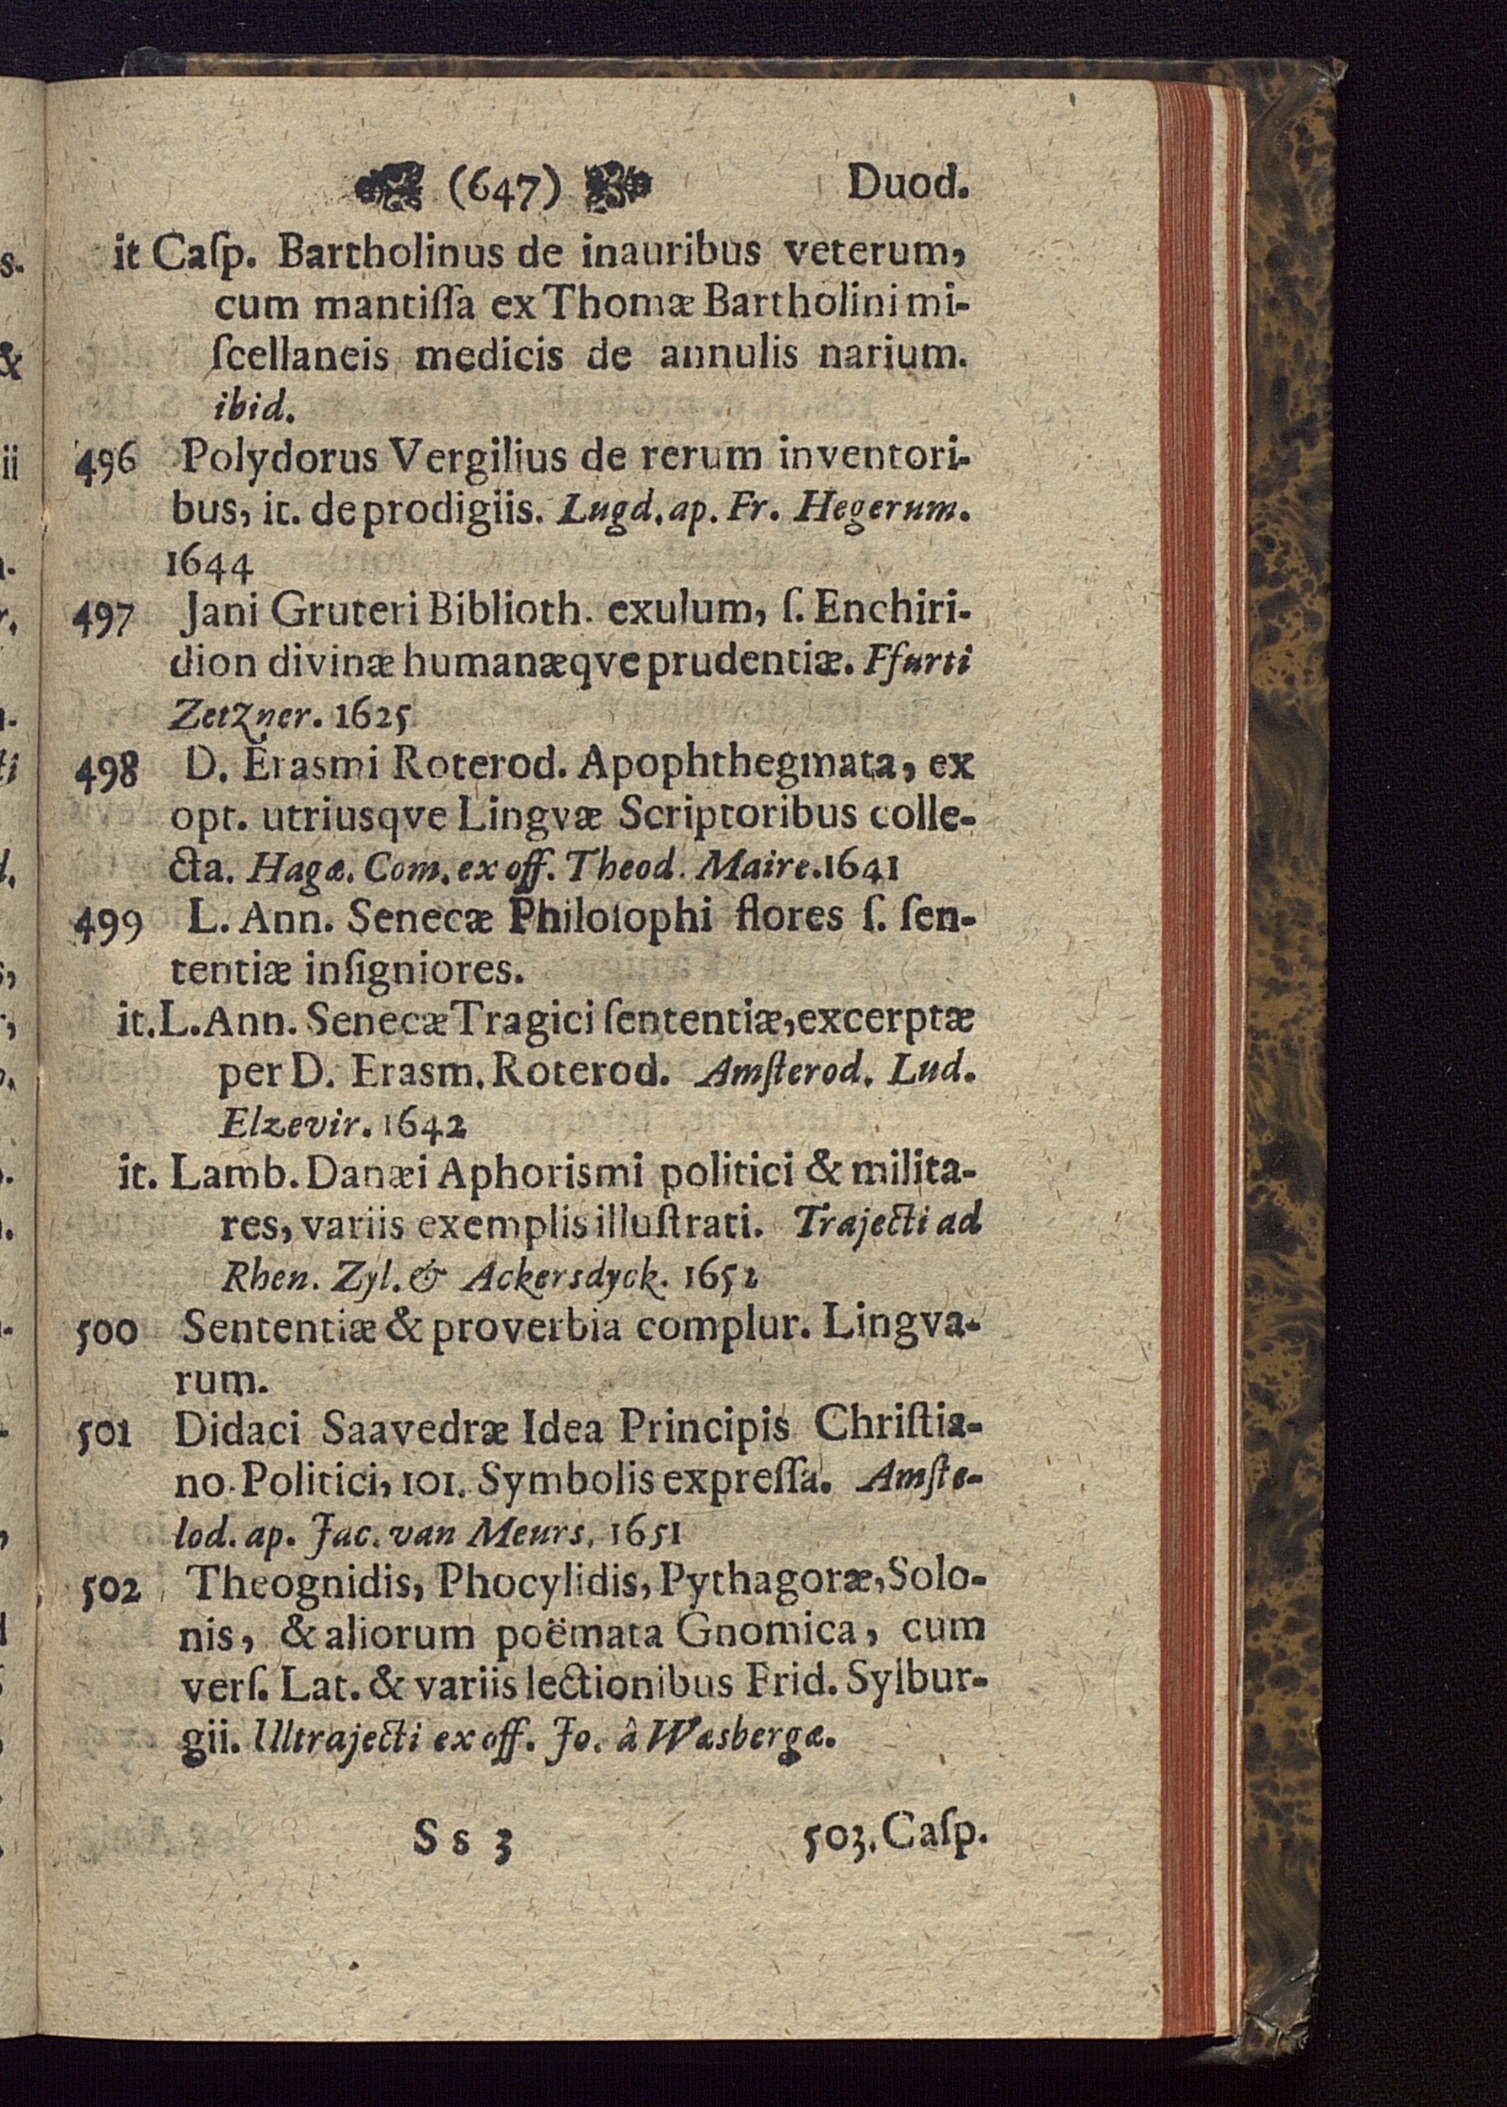 (647) Duod.
it Caſp. Bartholinus de inauribus veterum,
cum mantiſſa ex Thomæ Bartholini mi-
ſcellaneis medicis de annulis narium.
ibid.
496 Polydorus Vergilius de rerum inventori-
bus, it. de prodigiis. Lugd. ap. Fr. Hegerum.
1644
497 Jani Gruteri Biblioth. exulum, ſ. Enchiri-
dion divinæ humanæqve prudentiæ. Ffurti
Zetzner. 1625
498 D. Erasmi Roterod. Apophthegmata, ex
opt. utriusqve Lingvæ Scriptoribus colle-
cta. Hagæ. Com. ex off. Theod. Maire. 1641
499 L. Ann. Senecæ Philoſophi flores ſ. ſen-
tentiæ inſigniores.
it. L. Ann. Senecæ Tragici ſententiæ, excerptæ
per D. Erasm. Roterod. Amſterod. Lud.
Elzevir. 1642
it. Lamb. Danæi Aphorismi politici & milita-
res, variis exemplis illuſtrati. Trajecti ad
Rhen. Zyl. & Ackersdyck. 1652
500 Sententiæ & proverbia complur. Lingva-
rum.
501 Didaci Saavedræ Idea Principis Chriſtia-
no-Politici, 101. Symbolis expreſſa. Amſte-
lod. ap. Jac. van Meurs. 1651
502 Theognidis, Phocylidis, Pythagoræ, Solo-
nis, & aliorum poëmata Gnomica, cum
verſ. Lat. & variis lectionibus Frid. Sylbur-
gii. Ultrajecti ex off. Jo. â Wæsbergæ.
S s 3 503. Caſp.